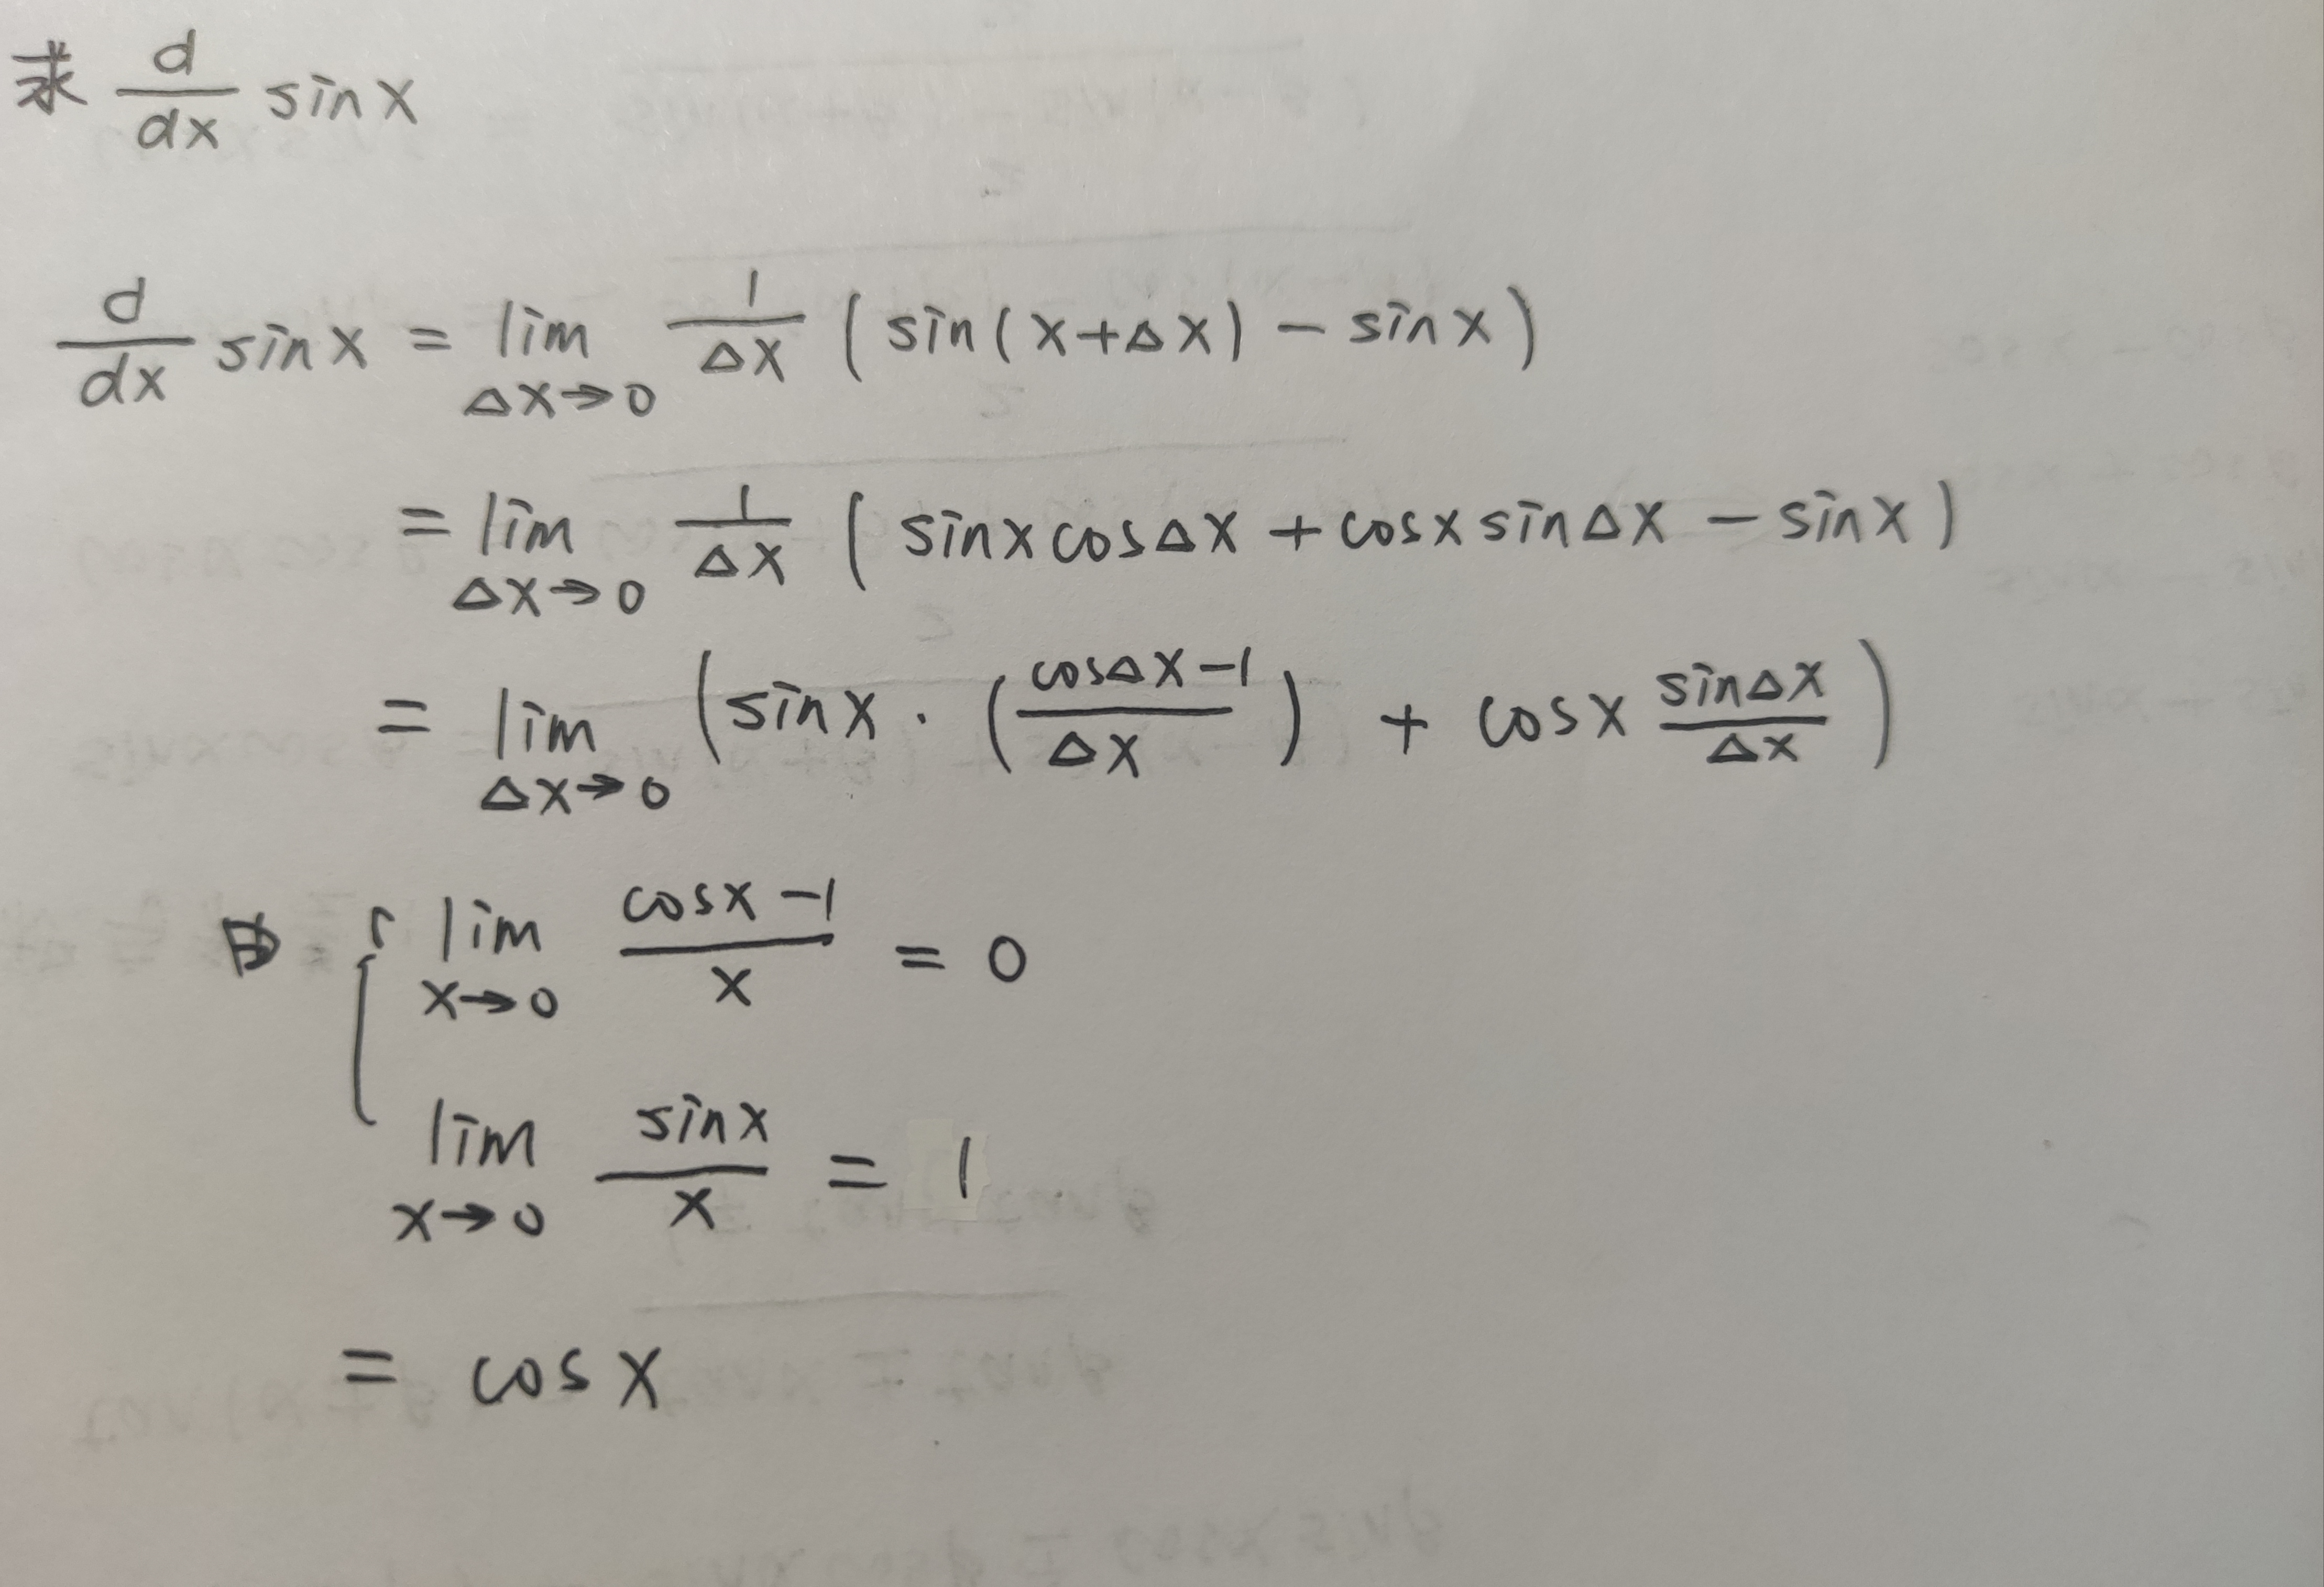 求 d/dx sin x
d/dx sin x = lim Δx→0 1/Δx ( sin(x+Δx) − sin x )
= lim Δx→0 1/Δx ( sin x cos Δx + cos x sin Δx − sin x )
= lim Δx→0 ( sin x · ( (cos Δx −1)/Δx ) + cos x sin Δx/Δx )
由 { lim x→0 (cos x −1)/x = 0
lim x→0 sin x/x = 1
= cos x